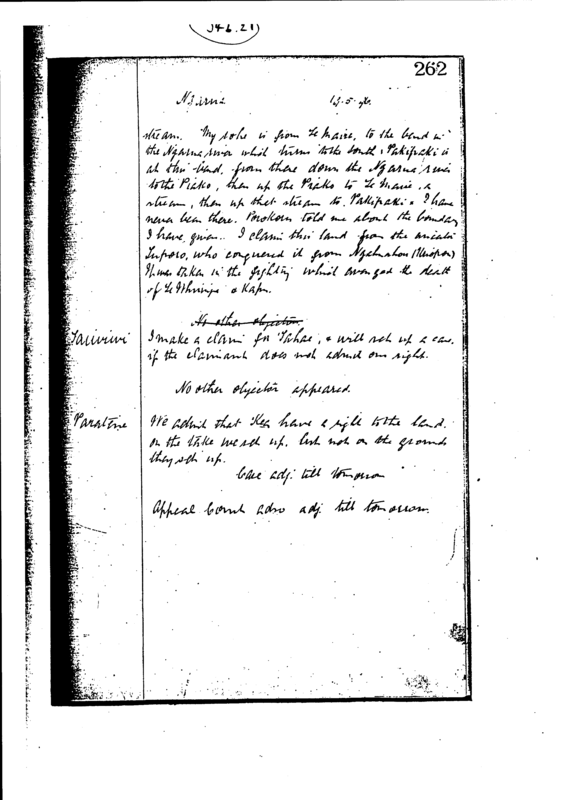 J46.21
262
Ngarua 13.5.96.
stream. My rohe is from Te Maire, to the bend in
the Ngarua river which turns to the South, Pakipaki is
at this bend, from there down the Ngarua river
to the Piako, then up the Piako to Te Maire, a
stream, then up that stream to Pakipaki. I have
never been there. told me about the boundary
I have given. I claim this land from the ancestor
who conquered it from
It was taken in the fighting which avenged the death
of Te &
No other objector
I make a claim for & will set up a case,
if the claimant does not admit our right.
No other objector appeared.
Paratene We admit that they have a right to the land.
on the take we set up, but not on the grounds
they set up.
Case adj. till tomorrow
Appeal Court also adj. till tomorrow.